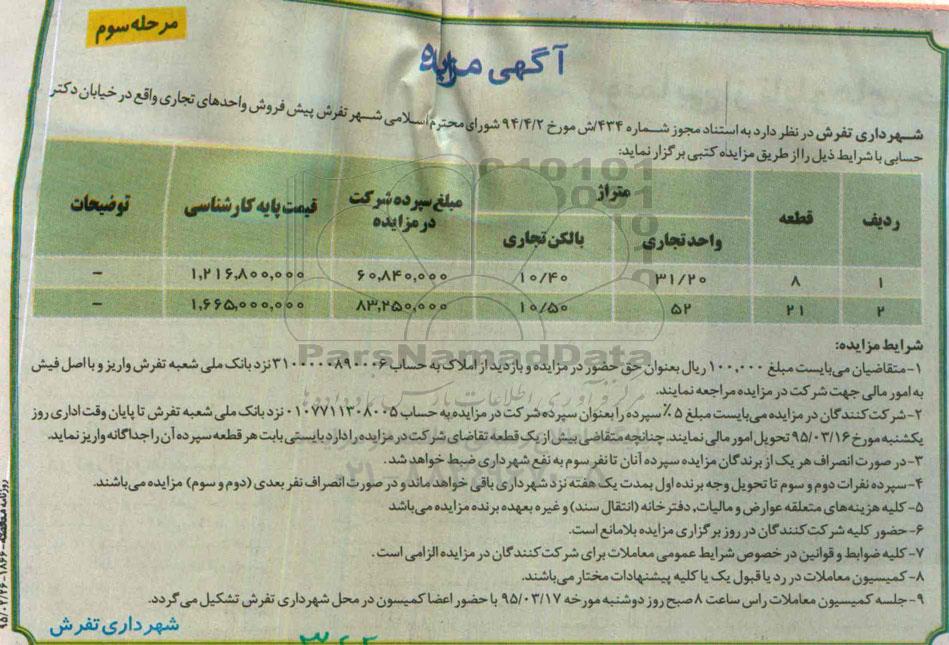 مرحله سوم
آگهی مزایده
شهرداری تفرش در نظر دارد به استناد مجوز شماره ۴۳۴/ش مورخ ۹۴/۴/۲ شورای محترم اسلامی شهر تفرش پیش فروش واحدهای تجاری واقع در خیابان دکتر
حسابی با شرایط ذیل را از طریق مزایده کتبی برگزار نماید:
ردیف قطعه متراژ مبلغ سپرده شرکت در مزایده قیمت پایه کارشناسی توضیحات
واحد تجاری بالکن تجاری
۱ ۸ ۳۱/۲۰ ۱۰/۴۰ ۶۰,۸۴۰,۰۰۰ ۱,۲۱۶,۸۰۰,۰۰۰ -
۲ ۲۱ ۵۲ ۱۰/۵۰ ۸۳,۲۵۰,۰۰۰ ۱,۶۶۵,۰۰۰,۰۰۰ -
ParsNamadData
شرایط مزایده:
۱-متقاضیان می‌بایست مبلغ ۱۰۰,۰۰۰ ریال بعنوان حق حضور در مزایده و بازدید از املاک به حساب ۳۱۰۰۰۰۰۸۹۰۰۰۶ نزد بانک ملی شعبه تفرش واریز و با اصل فیش
به امور مالی جهت شرکت در مزایده مراجعه نمایند.
۲-شرکت کنندگان در مزایده می‌بایست مبلغ ۵٪ سپرده را بعنوان سپرده شرکت در مزایده به حساب ۰۱۰۷۷۱۱۳۰۸۰۰۵ نزد بانک ملی شعبه تفرش تا پایان وقت اداری روز
یکشنبه مورخ ۹۵/۰۳/۱۶ تحویل امور مالی نمایند. چنانچه متقاضی بیش از یک قطعه تقاضای شرکت در مزایده را دارد بایستی بابت هر قطعه سپرده آن را جداگانه واریز نماید.
۳-در صورت انصراف هر یک از برندگان مزایده سپرده آنان تا نفر سوم به نفع شهرداری ضبط خواهد شد.
۴-سپرده نفرات دوم و سوم تا تحویل وجه برنده اول بمدت یک هفته نزد شهرداری باقی خواهد ماند و در صورت انصراف نفر بعدی (دوم و سوم) مزایده می‌باشند.
۵-کلیه هزینه‌های متعلقه عوارض و مالیات، دفترخانه (انتقال سند) و غیره بعهده برنده مزایده می‌باشد
۶-حضور کلیه شرکت کنندگان در روز برگزاری مزایده بلامانع است.
۷-کلیه ضوابط و قوانین در خصوص شرایط عمومی معاملات برای شرکت کنندگان در مزایده الزامی است.
۸-کمیسیون معاملات در رد یا قبول یک یا کلیه پیشنهادات مختار می‌باشند.
۹-جلسه کمیسیون معاملات راس ساعت ۸ صبح روز دوشنبه مورخه ۹۵/۰۳/۱۷ با حضور اعضا کمیسون در محل شهرداری تفرش تشکیل می گردد.
شهرداری تفرش